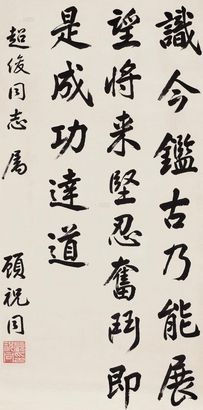 識今鑑古乃能展
望将来堅忍奮鬥即
是成功達道
超俊同志属
顧祝同